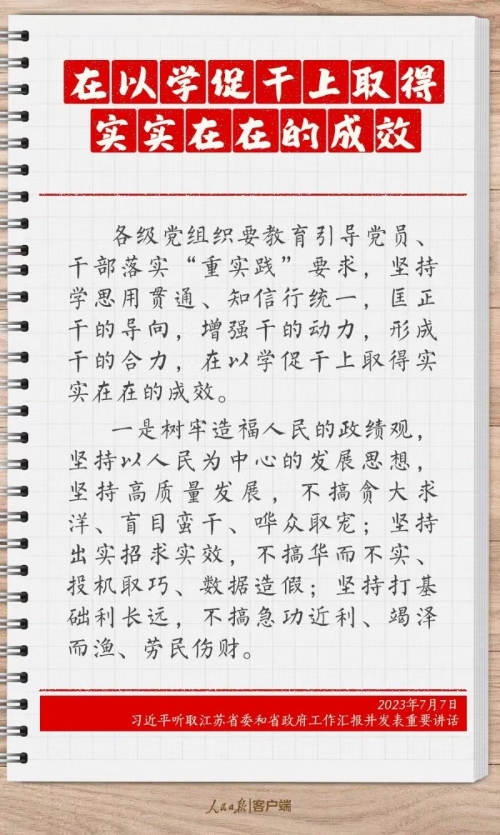 在以学促干上取得
实实在在的成效
各级党组织要教育引导党员、
干部落实“重实践”要求，坚持
学思用贯通、知信行统一，匡正
干的导向，增强干的动力，形成
干的合力，在以学促干上取得实
实在在的成效。
一是树牢造福人民的政绩观，
坚持以人民为中心的发展思想，
坚持高质量发展，不搞贪大求
洋、盲目蛮干、哗众取宠；坚持
出实招求实效，不搞华而不实、
投机取巧、数据造假；坚持打基
础利长远，不搞急功近利、竭泽
而渔、劳民伤财。
2023年7月7日
习近平听取江苏省委和省政府工作汇报并发表重要讲话
人民日报|客户端